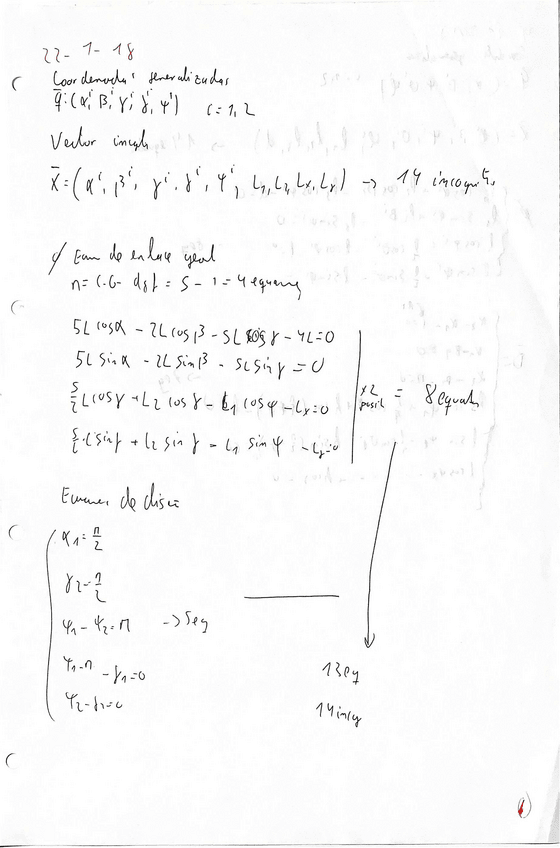 22-1-18
Coordenadas generalizadas
q̄: (αⁱ, βⁱ, γⁱ, δⁱ, ψⁱ) i = 1, 2
Vector incogn
X̄ = (αⁱ, βⁱ, γⁱ, δⁱ, ψⁱ, L₁, L₂, Lx, Ly) → 14 incognit
Ecuan de enlace geral
n = C.G - dgf = 5 - 1 = 4 equanes
5L cosα - 2L cosβ - 5L cosγ - 4L = 0
5L sinα - 2L sinβ - 5L sinγ = 0
5/2 L cosγ + L₂ cosδ - L₁ cosψ - Lx = 0
5/2 L sinγ + L₂ sinδ - L₁ sinψ - Ly = 0
x2 posit = 8 equats
Ecuanes de diseñ
α₁ = π/2
γ₂ = π/2
ψ₁ - ψ₂ = π → 5 eq
ψ₁ - π - δ₁ = 0
ψ₂ - δ₂ = 0
13 eq
14 incg